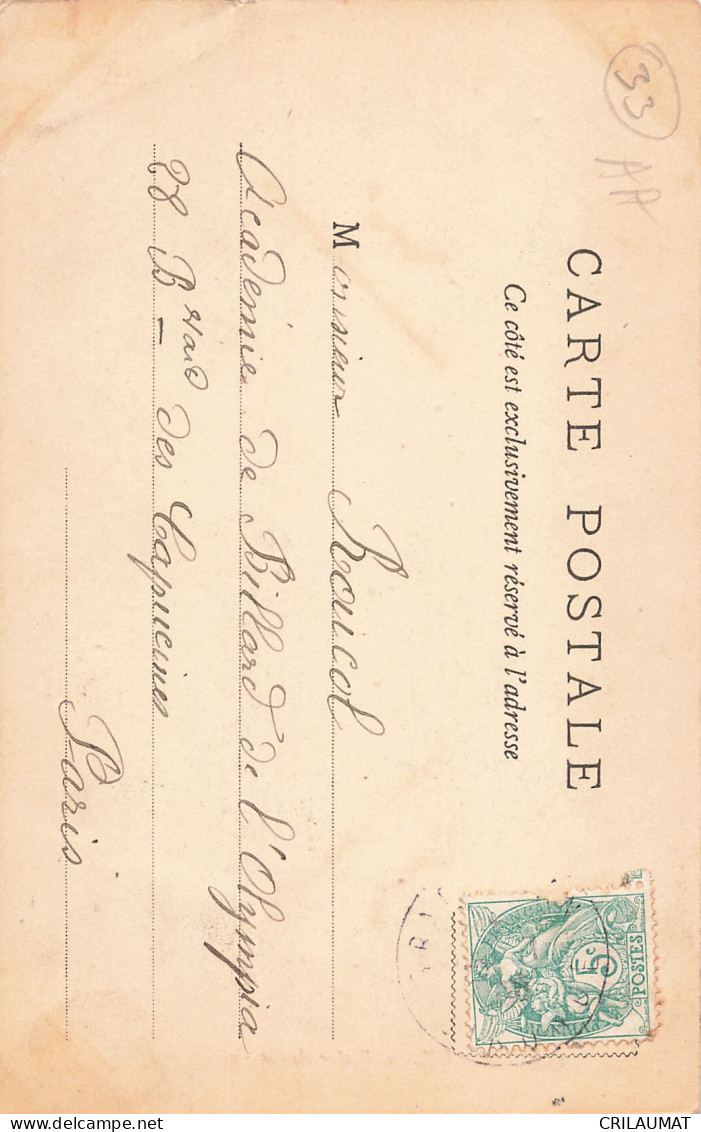 33
AA
CARTE POSTALE
Ce côté est exclusivement réservé à l'adresse
Monsieur Roucol
Académie de Billard de l'Olympia
28 B^vard des Capucines
Paris
5c
POSTES
CRILAUMAT